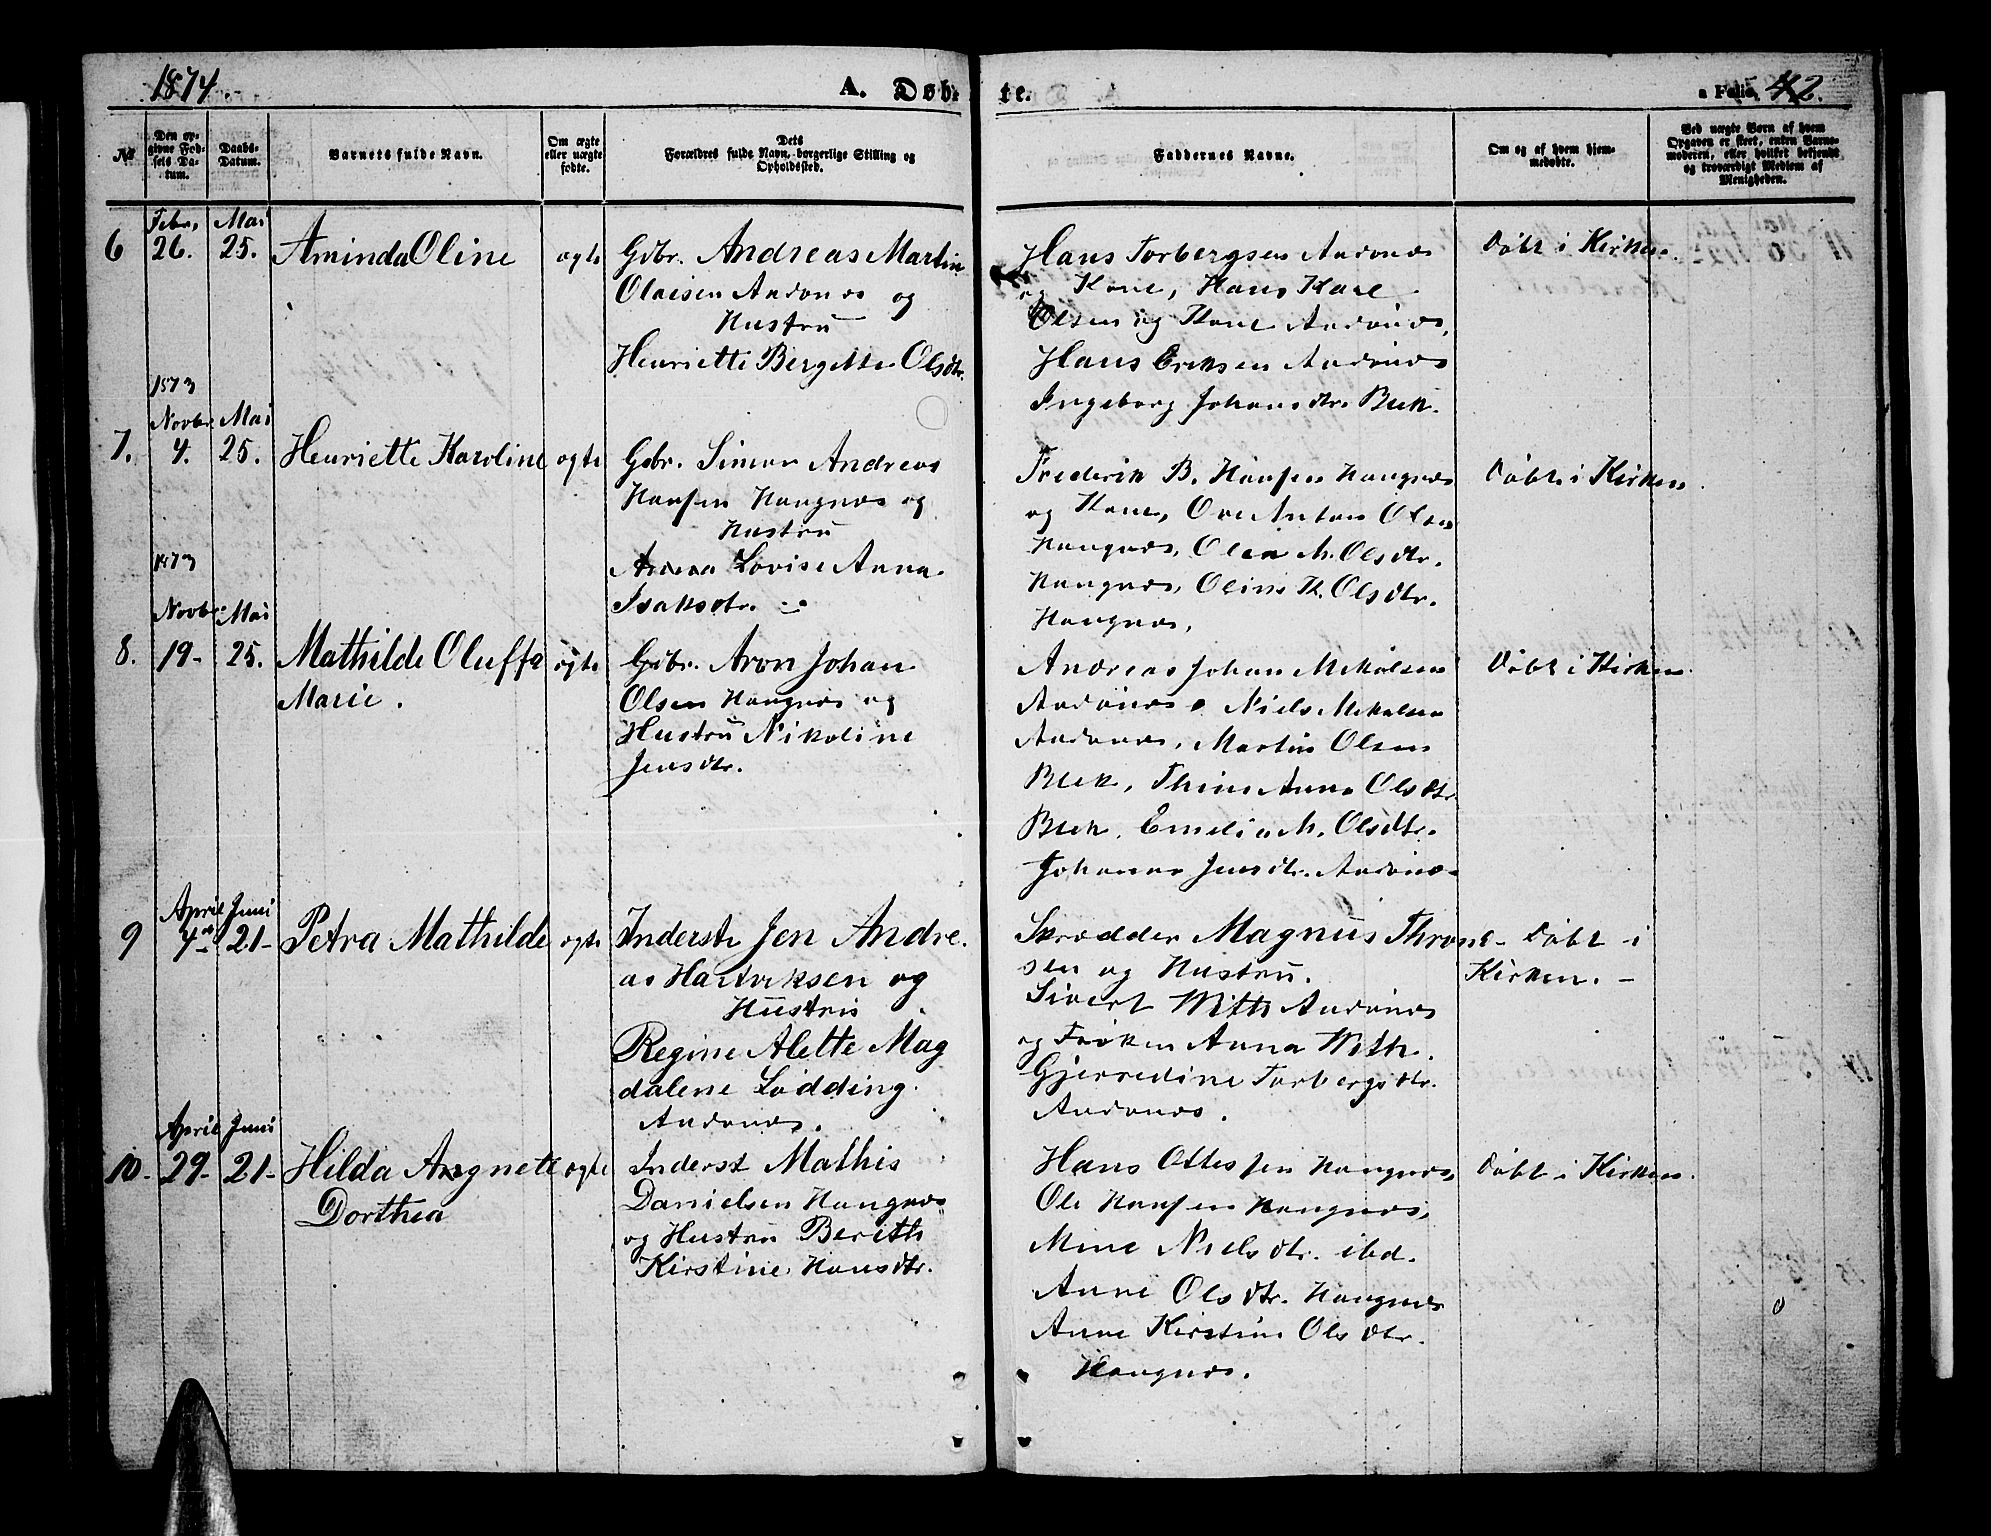 1874.
A. Døb-
te.
a Folio. 42.
№
Den opgivne Fødsels Datum.
Daabs-Datum.
Barnets fulde Navn.
Om ægte eller uægte fødte.
Dets Forældres fulde Navn, borgerlige Stilling og Opholdssted.
Faddernes Navne.
Om og af hvem hjemmedøbte.
Ved uægte Børn af hvem Opgaven er skeet, enten Barnemoderen, eller hvilket bekjendt og troværdigt Medlem af Menigheden.
6
Febr. 26.
Mai 25.
Aminda Oline
ægte
Gdbr. Andreas Martin
Olaisen Andønæs og
Hustru
Henriette Bergette Olsdtr.
Hans Torbergsen Andønæs
og Kone, Hans Karl
Olsen og Kone Andønæs,
Hans Eriksen Andønæs
Ingeborg Johansdtr. Blek.
Døbt i Kirken.
7.
1873
Novbr. 4.
Mai 25.
Henriette Karoline
ægte
Gdbr. Simon Andreas
Hansen Haugnæs og
Hustru
Lovise Anna
Isaksdtr.
Frederik B. Hansen Haugnæs
og Kone, Ove Anton Olsen
Haugnæs, Olea M. Olsdtr.
Haugnæs, Oline K. Olsdtr.
Haugnæs,
Døbt i Kirken.
8.
1873
Novbr. 19-
Mai 25.
Mathilde Oluffa
Marie.
ægte
Gdbr. Aron Johan
Olsen Haugnæs og
Hustru Nikoline
Jensdtr.
Andreas Johan Mekalsen
Andønæs, Niels Mekalsen
Andønæs, Martin Olsen
Blek, Thine Anna Olsdtr
Blek, Emelia M. Olsdtr.
Johanna Jensdtr. Andønæs
Døbt i Kirken.
9
April 4de
Juni 21-
Petra Mathilde
ægte
Inderste Jen Andre-
as Hartviksen og
Hustru
Regine Alette Mag
dalene Lødding.
Andønæs.
Skrædder Magnus Thrane-
sen og Hustru.
Sivert With Andønæs
og Frøken Anna With.
Gjerredine Torbergsdtr.
Andønæs.
Døbt i
Kirken. -
10.
April 29-
Juni 21-
Hilda Angnete
Dorthea
ægte
Inderst Mathis
Danielsen Haugnæs
og Hustru Berith
Kirstine Hansdtr.
Hans Ottessen Haugnæs,
Ole Hansen Haugnæs,
Mine Nielsdtr. ibd.
Anne Olsdtr. Haugnæs
Anne Kirstine Olsdtr.
Haugnæs.
Døbt i Kirken.